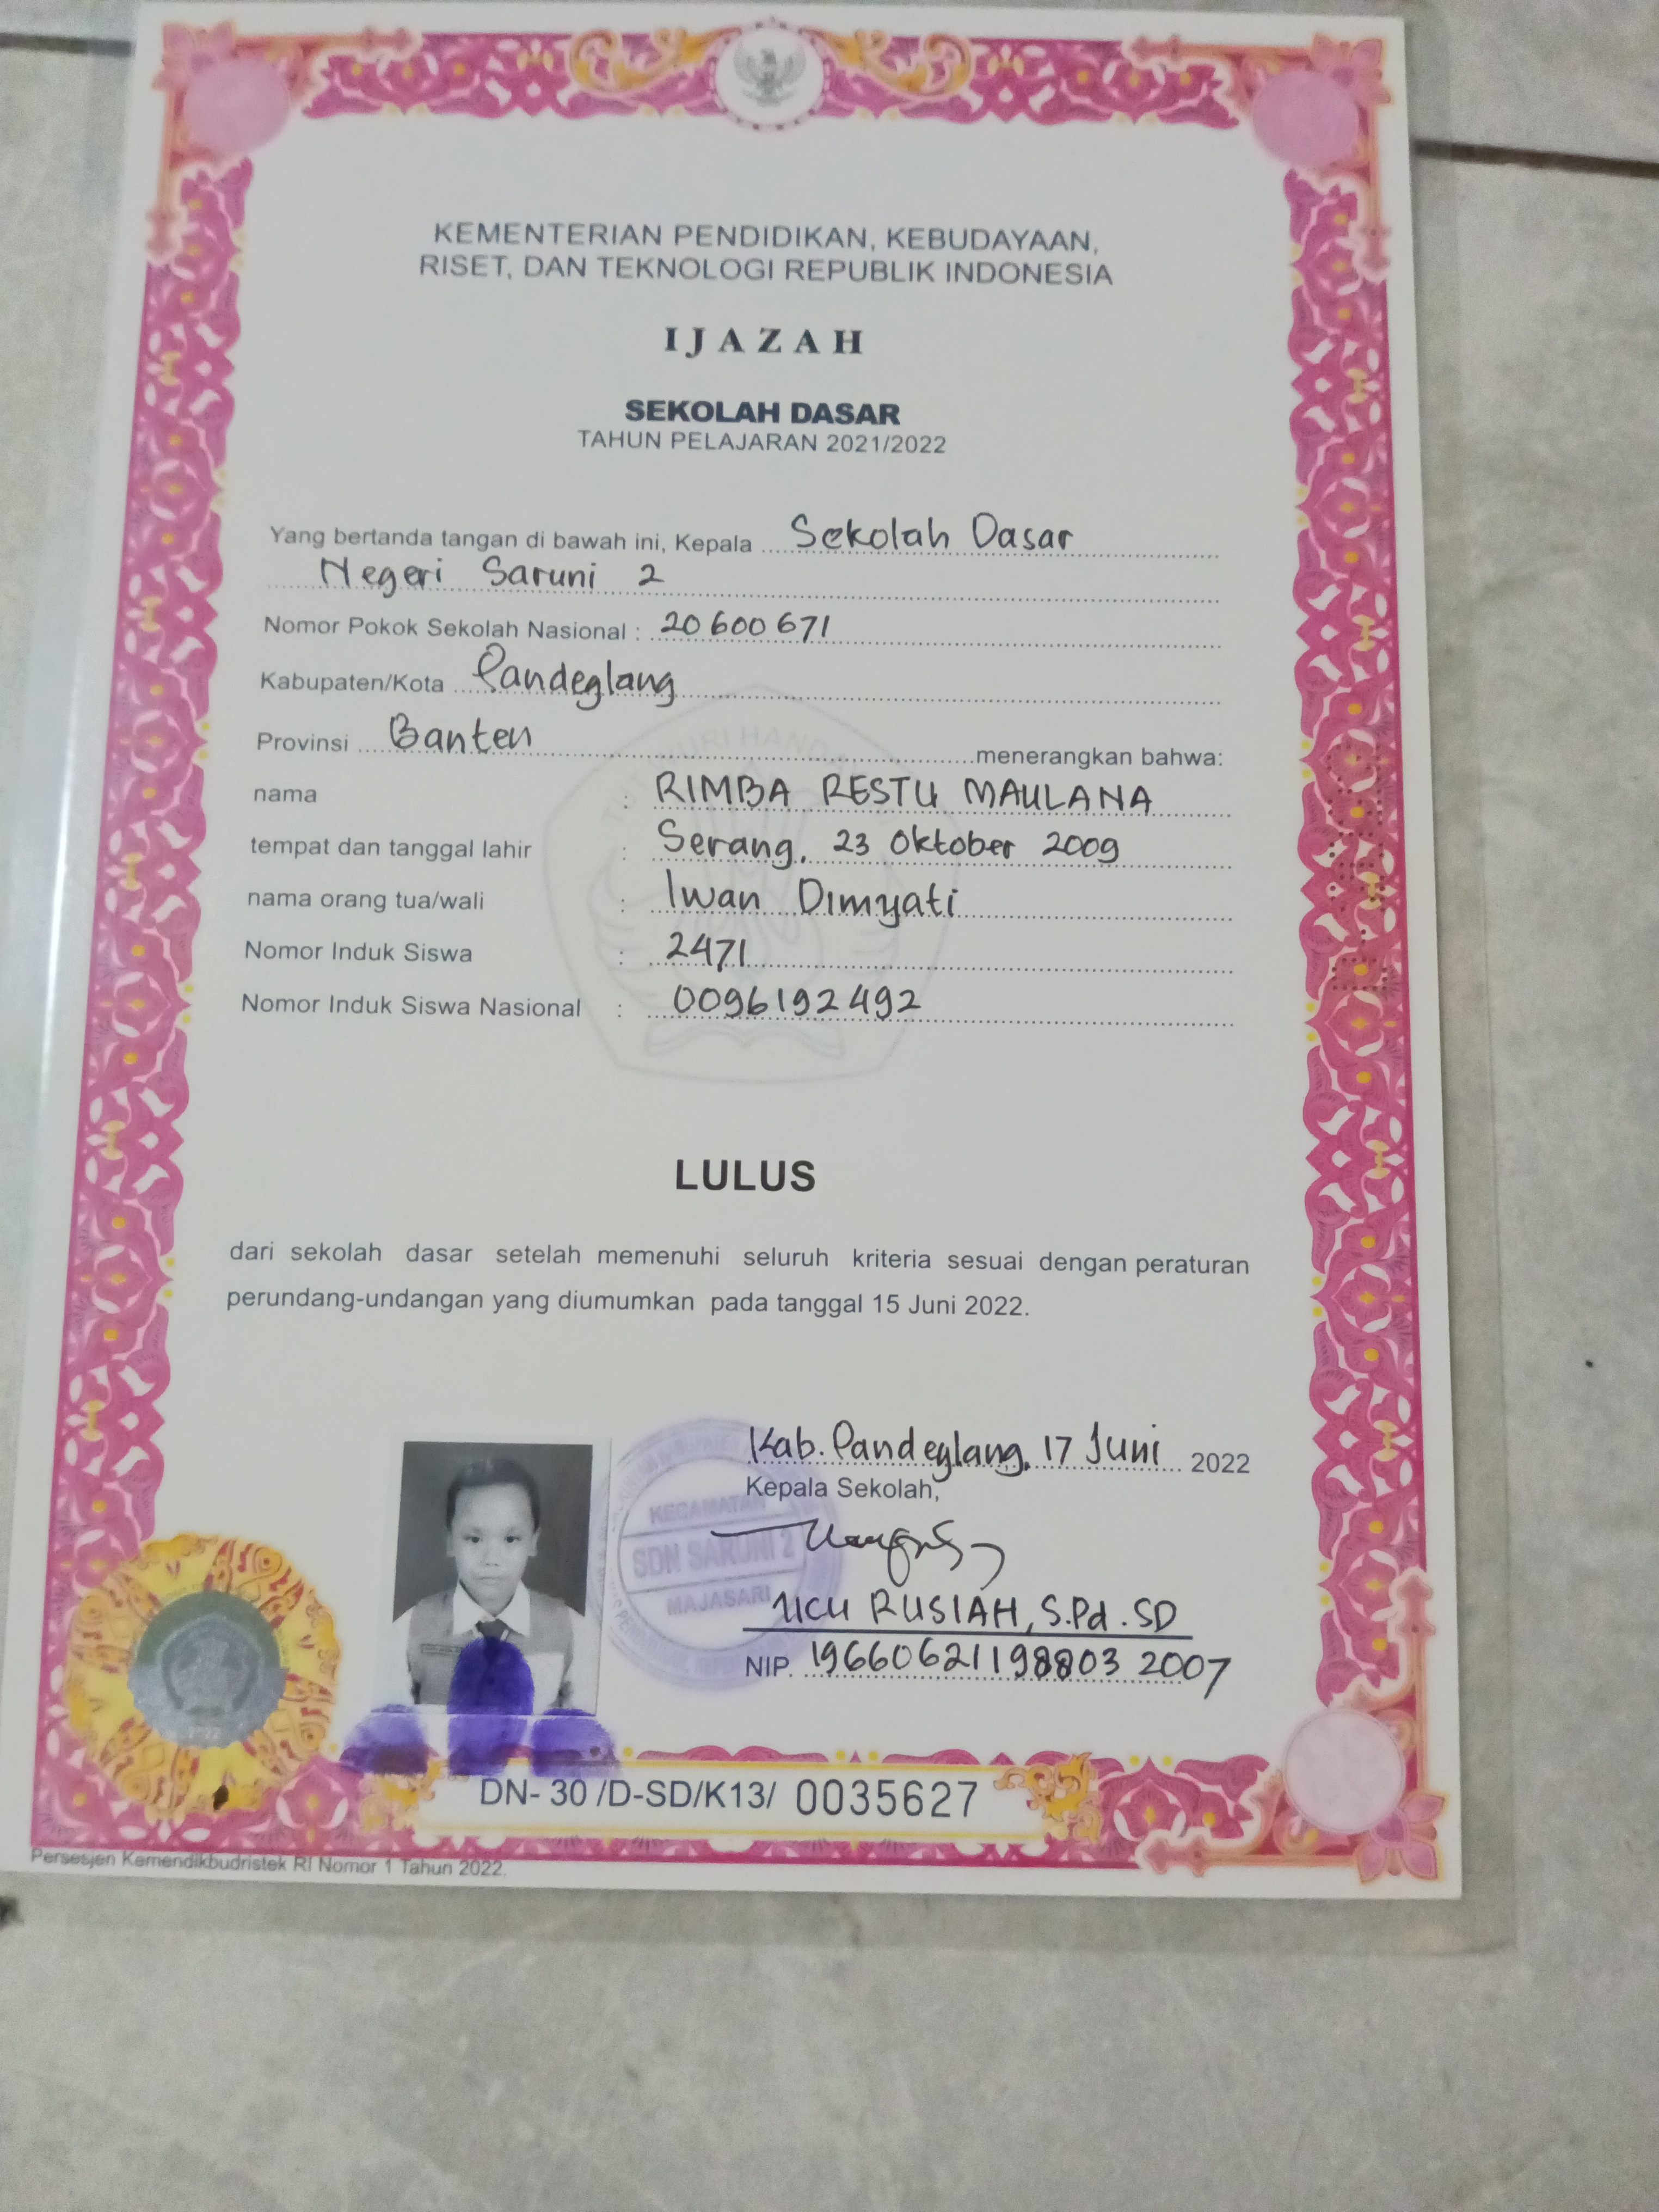 KEMENTERIAN PENDIDIKAN, KEBUDAYAAN,
RISET, DAN TEKNOLOGI REPUBLIK INDONESIA
IJAZAH
SEKOLAH DASAR
TAHUN PELAJARAN 2021/2022
Yang bertanda tangan di bawah ini, Kepala Sekolah Dasar
Negeri Saruni 2
Nomor Pokok Sekolah Nasional : 20600671
Kabupaten/Kota Pandeglang
Provinsi Banten menerangkan bahwa:
nama : RIMBA RESTU MAULANA
tempat dan tanggal lahir : Serang, 23 Oktober 2009
nama orang tua/wali : Iwan Dimyati
Nomor Induk Siswa : 2471
Nomor Induk Siswa Nasional : 0096192492
LULUS
dari sekolah dasar setelah memenuhi seluruh kriteria sesuai dengan peraturan
perundang-undangan yang diumumkan pada tanggal 15 Juni 2022.
Kab. Pandeglang, 17 Juni 2022
Kepala Sekolah,
KECAMATAN
SDN SARUNI 2
MAJASARI
UCU RUSIAH, S.Pd.SD
NIP. 19660621198803 2007
DN- 30 /D-SD/K13/ 0035627
Persesjen Kemendikbudristek RI Nomor 1 Tahun 2022.